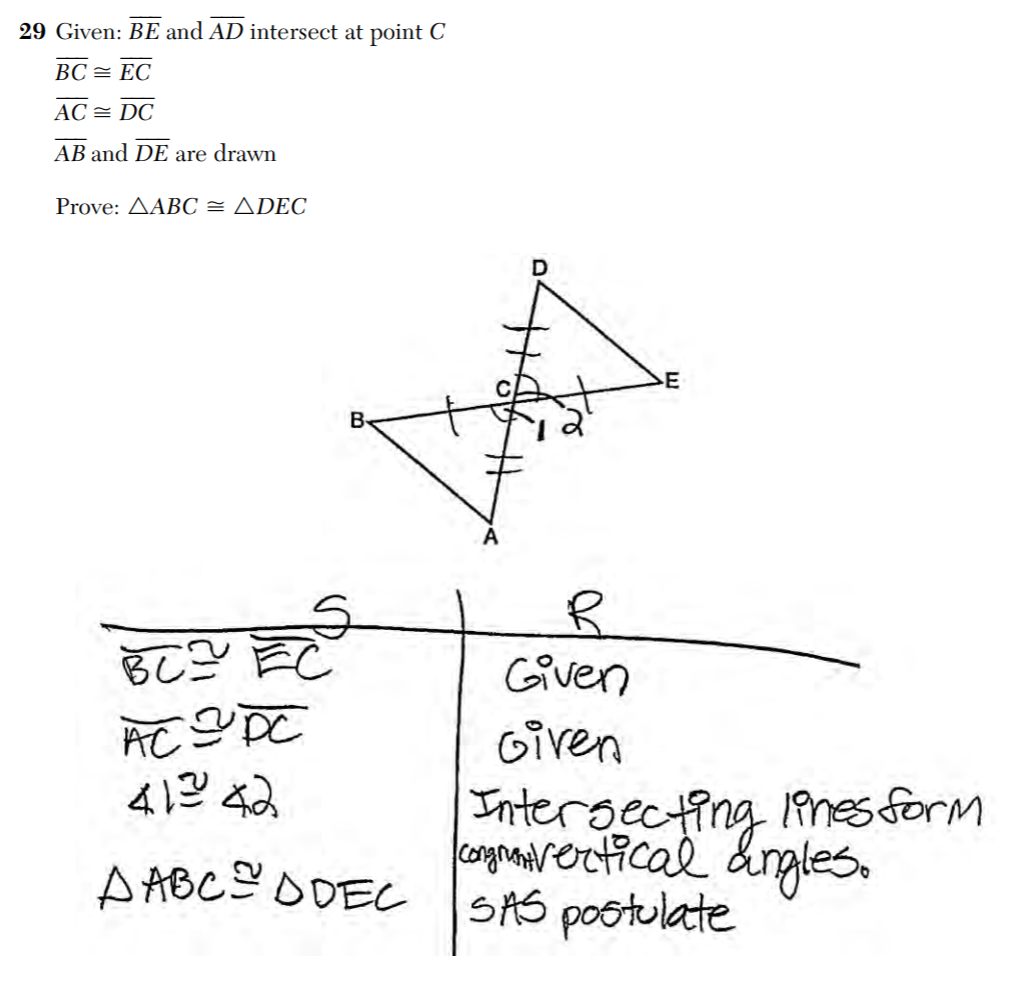 29 Given: BE and AD intersect at point C
BC ≅ EC
AC ≅ DC
AB and DE are drawn
Prove: △ABC ≅ △DEC
D
C
E
B
1 2
A
S R
BC ≅ EC Given
AC ≅ DC Given
∡1 ≅ ∡2 Intersecting lines form
congruent vertical angles.
△ABC ≅ △DEC SAS postulate